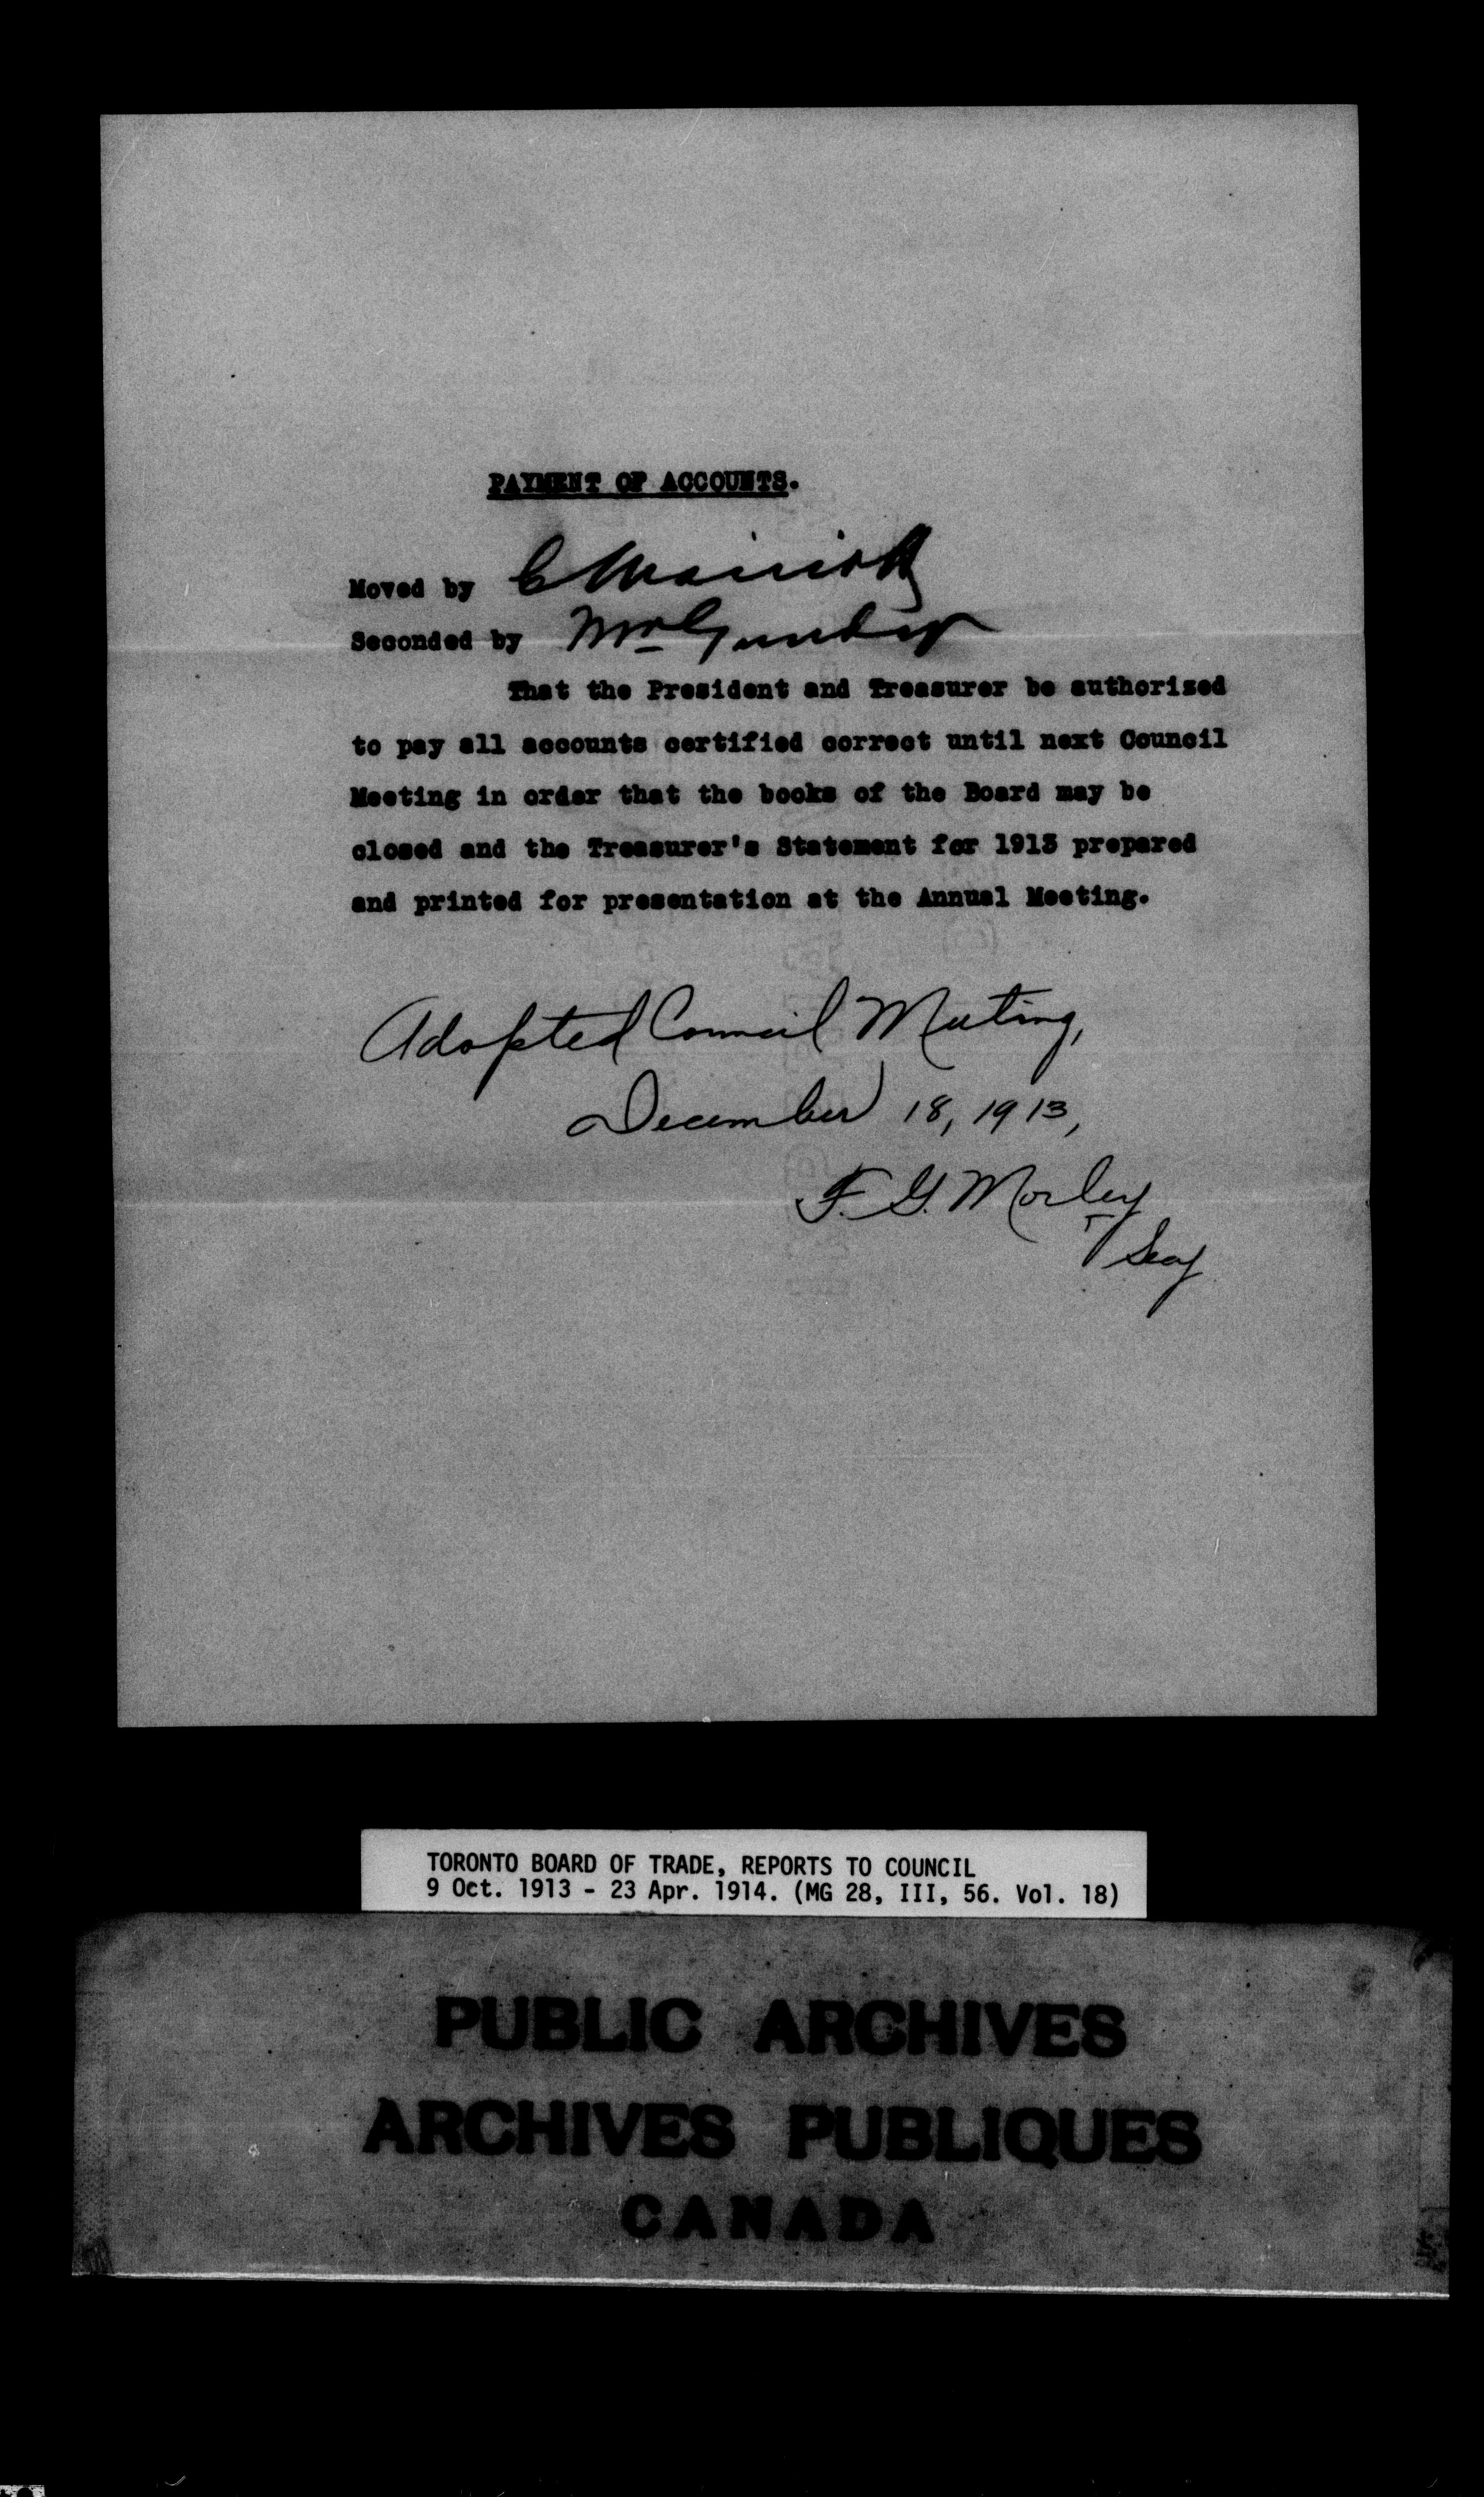 PAYMENT OF ACCOUNTS.
Moved by
Seconded by Mr
That the President and Treasurer be authorized
to pay all accounts certified correct until next Council
Meeting in order that the books of the Board may be
closed and the Treasurer's Statement for 1913 prepared
and printed for presentation at the Annual Meeting.
Adopted Council Meeting,
December 18, 1913,
F. G. Morley
Secy
TORONTO BOARD OF TRADE, REPORTS TO COUNCIL
9 Oct. 1913 - 23 Apr. 1914. (MG 28, III, 56. Vol. 18)
PUBLIC ARCHIVES
ARCHIVES PUBLIQUES
CANADA